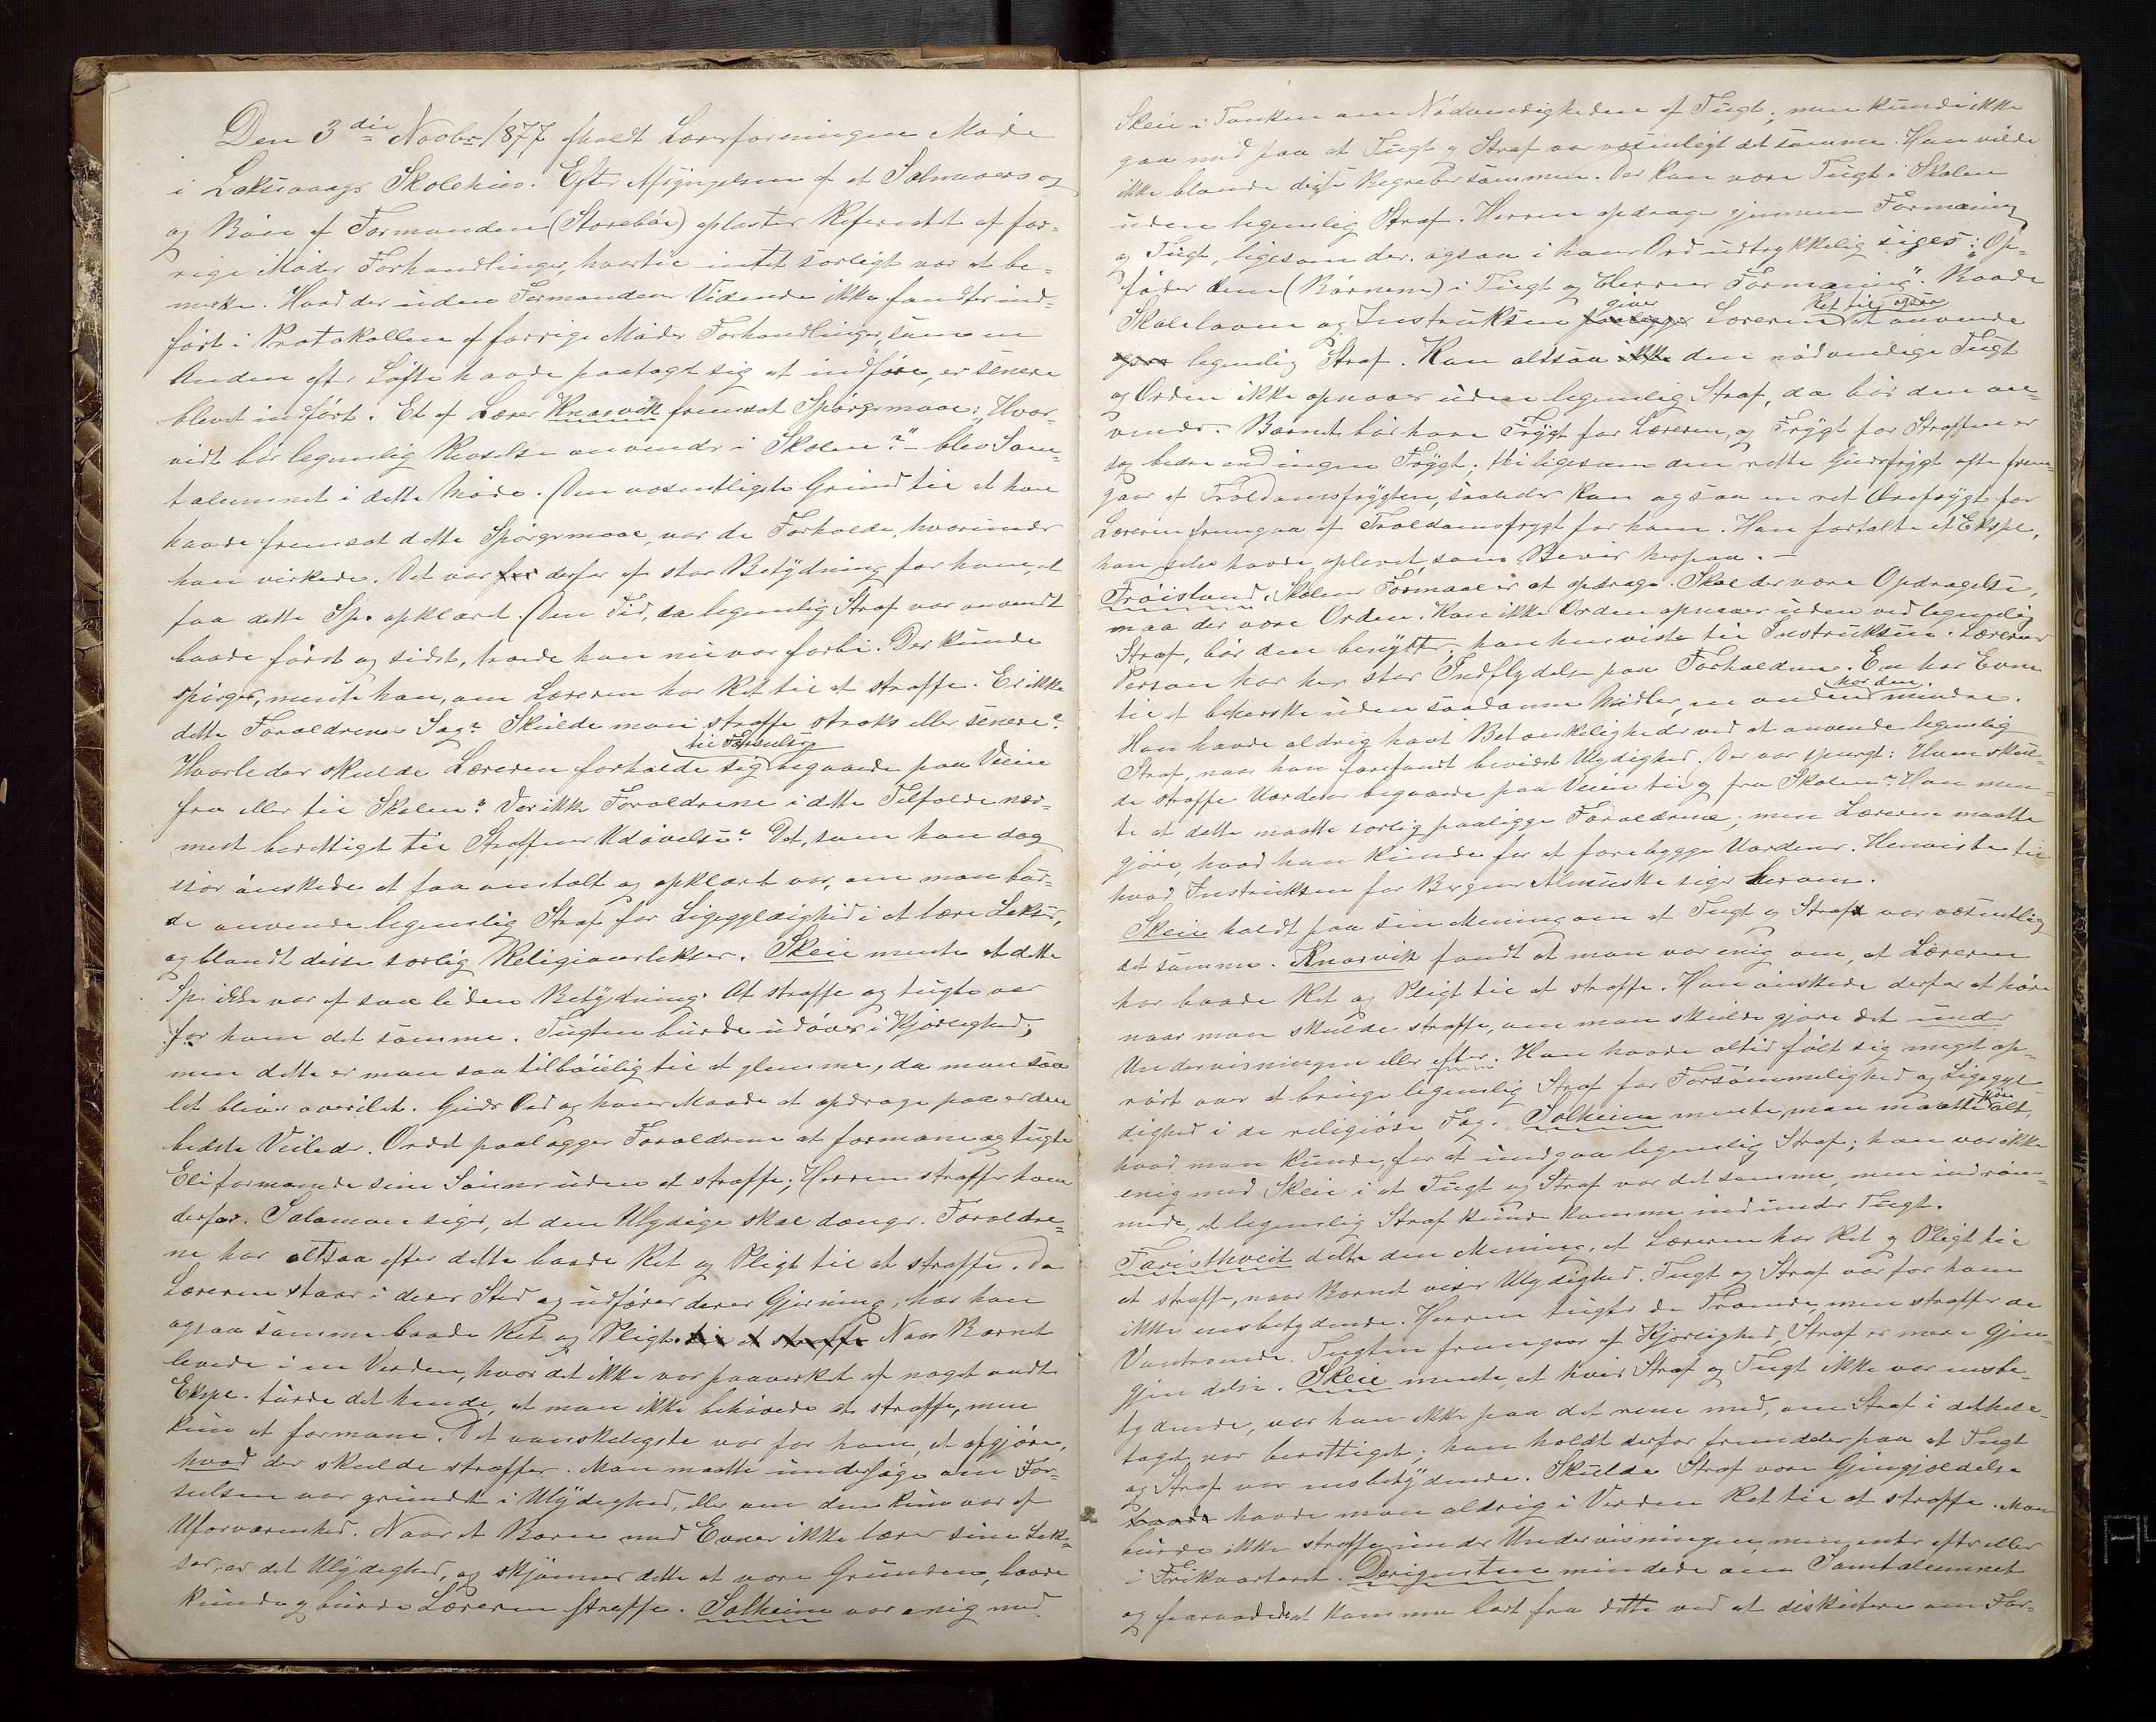 Den 3die Novbr 1877 afholdt Lærerforeningen Møde
i Laksevaags Skolehus. Efter Afsyngelsen af et Salmevers og
og Bøn af Formanden (Storebøe) oplæstes Referatet af for-
rige Mødes Forhandlinger, hvortil intet særligt var at be-
mærke. Hvad der uden Formandens Vidende ikke fandtes ind-
ført i Protokollen af forrige Mødes Forhandlinger, som en
Anden efter Løfte havde paataget sig at indføre, er senere
blevet indført. Et af Lærer Knarvik fremsat Spørgsmaal: „Hvor-
vidt bør legemlig Revselse anvendes i Skolen?" – blev Sam-
taleemnet i dette Møde. Den væsentligste Grund til at han
havde fremsat dette Spørgsmaal, var de Forholde, hvorunder
han virkede. Det var derfor af stor Betydning for ham, at
faa dette Sp. opklaret. Den Tid, da legemlig Straf var anvendt
baade først og sidst, troede han nu var forbi. Der kunde
spørges, mente han, om Læreren har Ret til at straffe. Er ikke
dette Forældrenes Sag? Skulde man straffe straks eller senere?
Hvorledes skulde Læreren forholde sig til Forseelser begaaede paa Veien
fra eller til Skolen? Var ikke Forældrene i dette Tilfælde nær-
mest berettiget til Straffens Udøvelse? Det, som han dog
især ønskede at faa omtalt og opklaret var, om man bur-
de anvende legemlig Straf for Ligegyldighed i at lære Lekser,
og blandt disse særlig Religionslekser. Skeie mente at dette
Sp. ikke var af saa liden Betydning. At straffe og tugte var
for ham det samme. Tugten burde udøves i Kjærlighed;
men dette er man saa tilbøielig til at glemme, da man saa
let bliver overilet. Guds Ord og hans Maade at opdrage paa er den
bedste Veileder. Ordet paalægger Forældrene at formane og tugte
Eli formanede sine Sønner uden at straffe; Herren straffer ham
derfor. Salamon siger, at den Ulydige skal dænges. Forældre-
ne har altsaa efter dette baade Ret og Pligt til at straffe. Da
Læreren staar i deres Sted og udfører deres Gjerning, har han
ogsaa samme baade Ret og Pligt til at straffe Naar Barnet
levede i en Verden, hvor det ikke var paavirket af noget ondt
Ekspl. turde det hende, at man ikke behøvede at straffe, men
kun at formane. Det vanskeligste var for ham, at afgjøre,
hvad der skulde straffes. Man maatte undersøge om For-
seelsen var grundet i Ulydighed, eller om den kun var af
Uforvarenhed. Naar et Barn med Evner ikke lærer sine Lek-
ser, er det Ulydighed, og skjønnes dette at være Grunden, baade
kunde og burde Læreren straffe. Solheim var enig med
Skeie i Tanken om Nødvendigheden af Tugt; men kunde ikke
gaa med paa at Tugt og Straf var væsentligt det samme. Han vilde
ikke blande disse Begreber sammen. Der kan være Tugt i Skolen
uden legemlig Straf. Herren opdrager gjennem Formaning
og Tugt, ligesom der ogsaa i hans Ord udtrykkelig siges: „Op-
føder dem (Børnene) i Tugt og Herrens Formaning". Baade
Skoleloven og Instruksen giver Læreren Ret til ogsaa at anvende
legemlig Straf. Kan altsaa ikke den nødvendige Tugt
og Orden ikke opnaaes uden legemlig Straf, da bør den an-
vendes. Barnet bør have Frygt for Læreren, og Frygt for Straffen er
dog bedre end ingen Frygt; thi ligesom den rette Gudsfrygt ofte frem-
gaar af Trældomsfrygten, saaledes kan ogsaa en ret Ærefrygt for
Læreren fremgaa af Trældomsfrygt for ham. Han fortalte et Ekspl.
han selv havde oplevet som Bevis herpaa. –
Frøisland. Skolens Formaal er at opdrage. Skal der være Opdragelse,
maa der være Orden. Kan ikke Orden opnaaes uden ved legemlig
Straf, bør den benyttes; han henviste til Instruksen. Lærerens
Person har her stor Indflydelse paa Forholdene. En har Evne
til at beherske uden saadanne Midler, en anden har den mindre.
Han havde aldrig havt Betænkeligheder ved at anvende legemlig
Straf, naar han forefandt bevidst Ulydighed. Der var spurgt: Hvem skul-
de straffe Uordener begaaede paa Veien til og fra Skolen? Han men-
te at dette maatte særlig paaligge Forældrene; men Læreren maatte
gjøre, hvad han kunde for at forebygge Uordener. Henviste til
hvad Instruksen for Bergens Almueskole siger herom.
Skeie holdt paa sin Mening om at Tugt og Straf var væsentlig
det samme. Knarvik fandt at man var enig om, at Læreren
har baade Ret og Pligt til at straffe. Han ønskede derfor at høre
naar man skulde straffe, om man skulde gjøre det under
Undervisningen eller efter. Han havde altid følt sig meget op-
rørt over at bruge legemlig Straf for Forsømmelighed og Ligegyl-
dighed i de religiøse Fag. Solheim mente, man maatte gjøre alt,
hvad man kunde, for at undgaa legemlig Straf; han var ikke
enig med Skeie i at Tugt og Straf var det samme, men indrøm-
mede, at legemlig Straf kunde komme ind under Tugt.
Faristhveit delte den Mening, at Læreren har Ret og Pligt til
at straffe, naar Barnet viser Ulydighed. Tugt og Straf var for ham
ikke ensbetydende. Herren tugter de Troende, men straffer de
Vantroende. Tugten fremgaar af Kjærlighed, Straf er mere Gjen-
gjældelse. Skeie mente, at hvis Straf og Tugt ikke var ensbe-
tydende, var han ikke paa det rene med, om Straf i dethele-
taget var berettiget; han holdt derfor fremdeles paa at Tugt
og Straf var ensbetydende. Skulde Straf være Gjengjældelse
havde man aldrig i Verden Ret til at straffe. Man
burde ikke straffe under Undervisningen, men enten efter eller
i Frikvarteret. Dirigenten mindede om Samtaleemnet
og fraraadede at komme bort fra dette ved at diskutere om For-